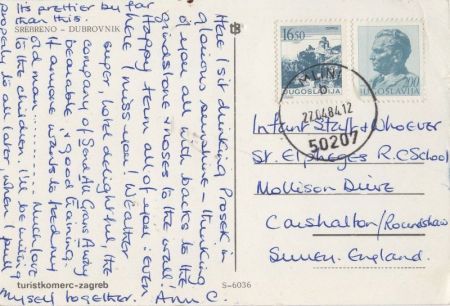 Its prettier by far
than this.
SREBRENO - DUBROVNIK
Here I sit drinking Prosek in
glorious sunshine - thinking
of you all with backs to the
grindstone & noses to the wall!
Happy term all of you: Even
here I miss you! Weather
super, hotel delightful, the
company of Grans Away
bearable & good training
if anyone wants to lend my
old man....... Much love
to the children. I'll be writing
properly to all later when I pull
myself together. Ann C.
turistkomerc-zagreb
S-6036
16,50
JUGOSLAVIJA
MLINI
27.04.84.12
50207
Infant Staff & Whoever
St. Elpheges R.C School
Mollison Drive
Carshalton/Roundshaw
Surrey. England.